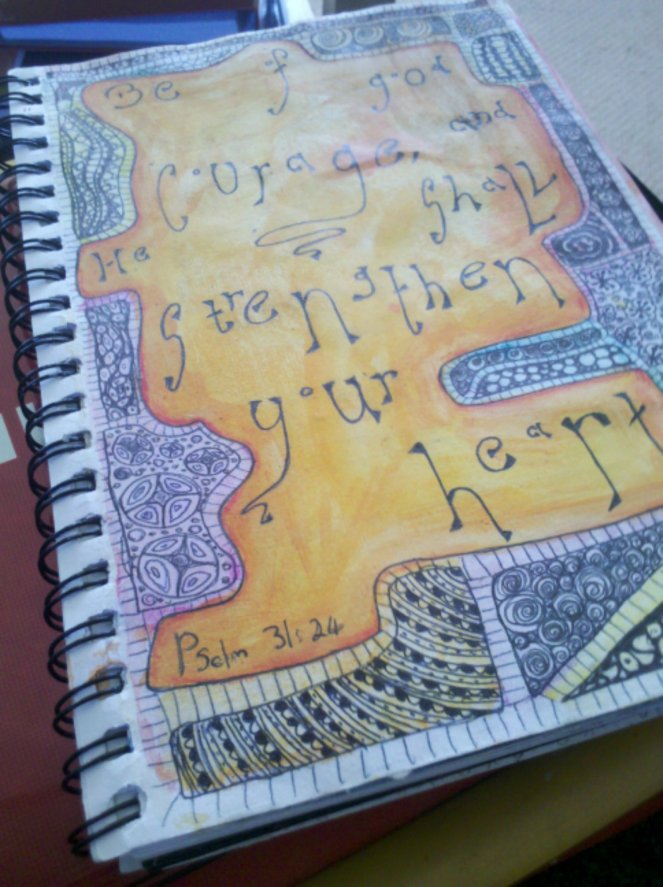 Be of good
courage, and
He shall
strengthen
your
heart
Psalm 31:24